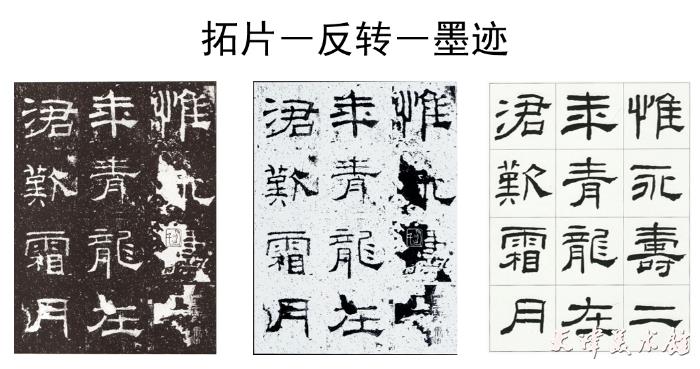 拓片—反转—墨迹
惟
年青龍在
涒歎霜月
惟
年青龍在
涒歎霜月
惟永壽二
年青龍在
涒歎霜月
天津美术馆